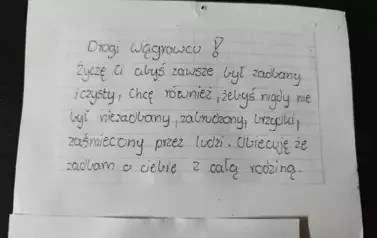 Drogi Wągrowcu !
Życzę Ci abyś zawsze był zadbany
i czysty, Chcę również, żebyś nigdy nie
był niezadbany, zabrudzony, brzydki,
zaśmiecony przez ludzi. Obiecuję że
zadbam o ciebie z całą rodziną.